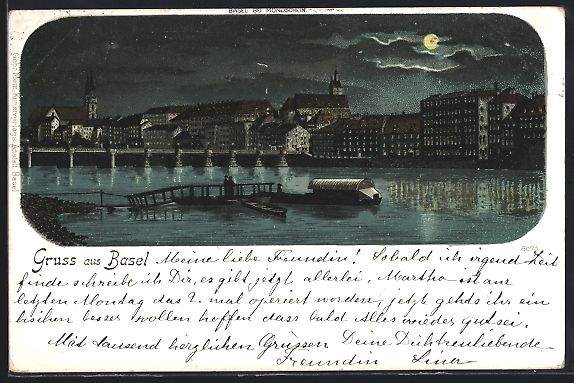 BASEL BEI MONDSCHEIN.
Gebr. Metz, Kunstverlags-Anstalt, Basel.
6075
Gruss aus Basel Meine liebe Freundin! Sobald ich irgend Zeit
finde schreibe ich Dir, es gibt jetzt allerlei, Martha ist am
letzten Montag das 2. mal operiert worden, jetzt gehds ihr ein
bischen besser wollen hoffen dass bald Alles wieder gut sei.
Mit tausend herzlichen Grüssen Deine Dichtreuliebende
Freundin Lina